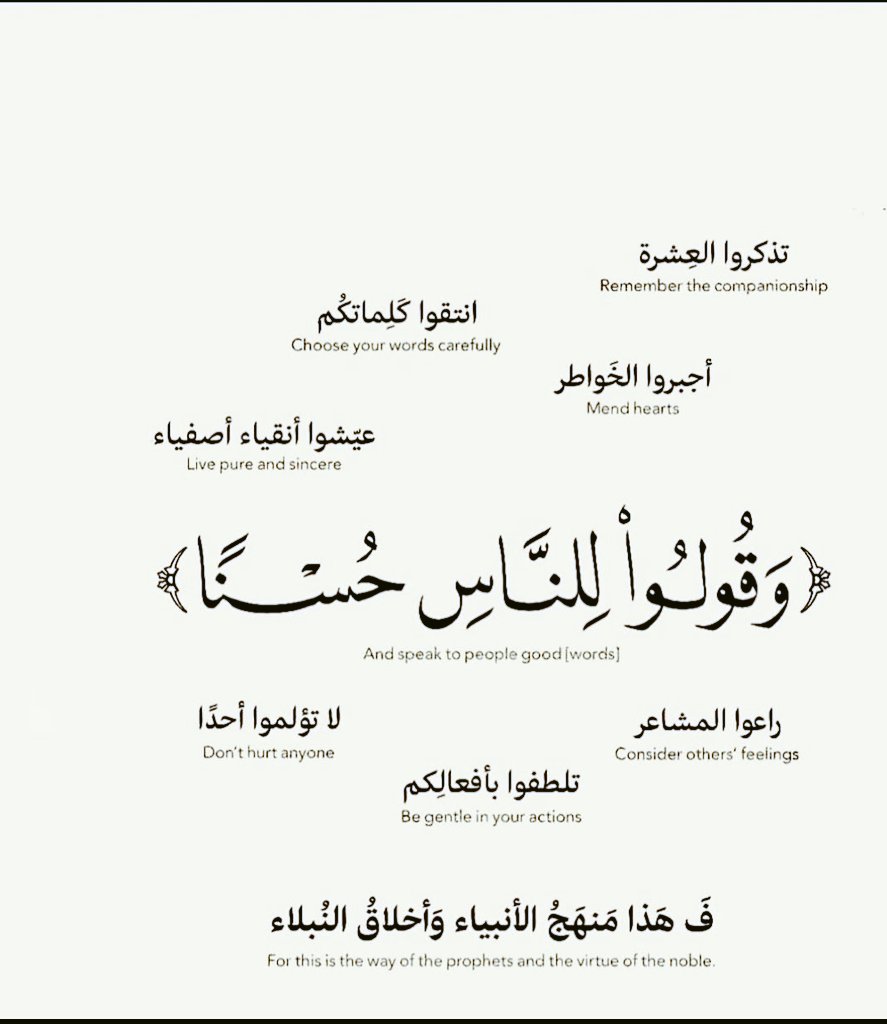 تذكروا العِشرة
Remember the companionship
انتقوا كَلِماتكُم
Choose your words carefully
أجبروا الخَواطر
Mend hearts
عيّشوا أنقياء أصفياء
Live pure and sincere
﴿وَقُولُوا۟ لِلنَّاسِ حُسْنًا﴾
And speak to people good [words]
راعوا المشاعر
Consider others' feelings
لا تؤلموا أحدًا
Don't hurt anyone
تلطفوا بأفعالِكم
Be gentle in your actions
فَ هَذا مَنهَجُ الأنبياء وَأخلاقُ النُبلاء
For this is the way of the prophets and the virtue of the noble.